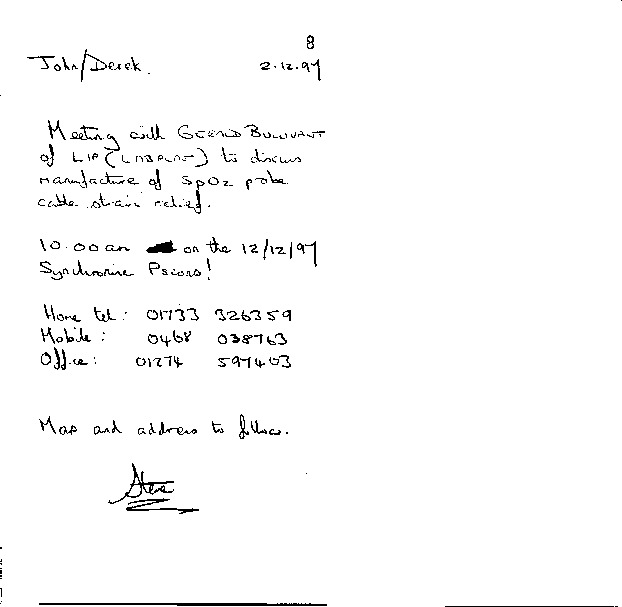 8
John/Derek. 2.12.97
Meeting with Gerard
of LIP (Labplas) to discuss
manufacture of SpO2 probe
cable strain relief.
10.00 am on the 12/12/97
Synchronise Pscons!
Home tel: 01733 326359
Mobile: 0468 038763
Office: 01274 597403
Map and address to follow.
Steve